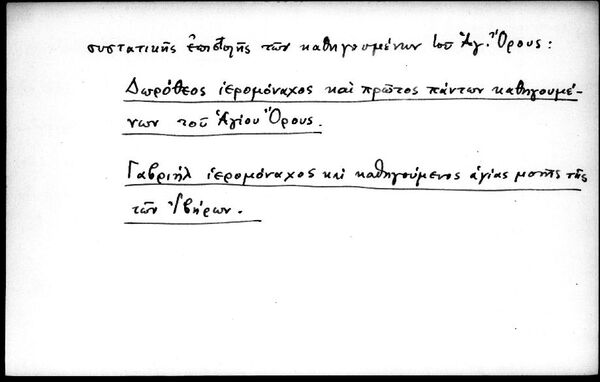 συστατικῆς ἐπιστολῆς τῶν καθηγουμένων τοῦ Ἁγ. Ὄρους:
Δωρόθεος ἱερομόναχος καὶ πρῶτος πάντων καθηγουμέ-
νων τοῦ Ἁγίου Ὄρους.
Γαβριὴλ ἱερομόναχος καὶ καθηγούμενος ἁγίας μονῆς τῆς
τῶν Ἰβήρων.